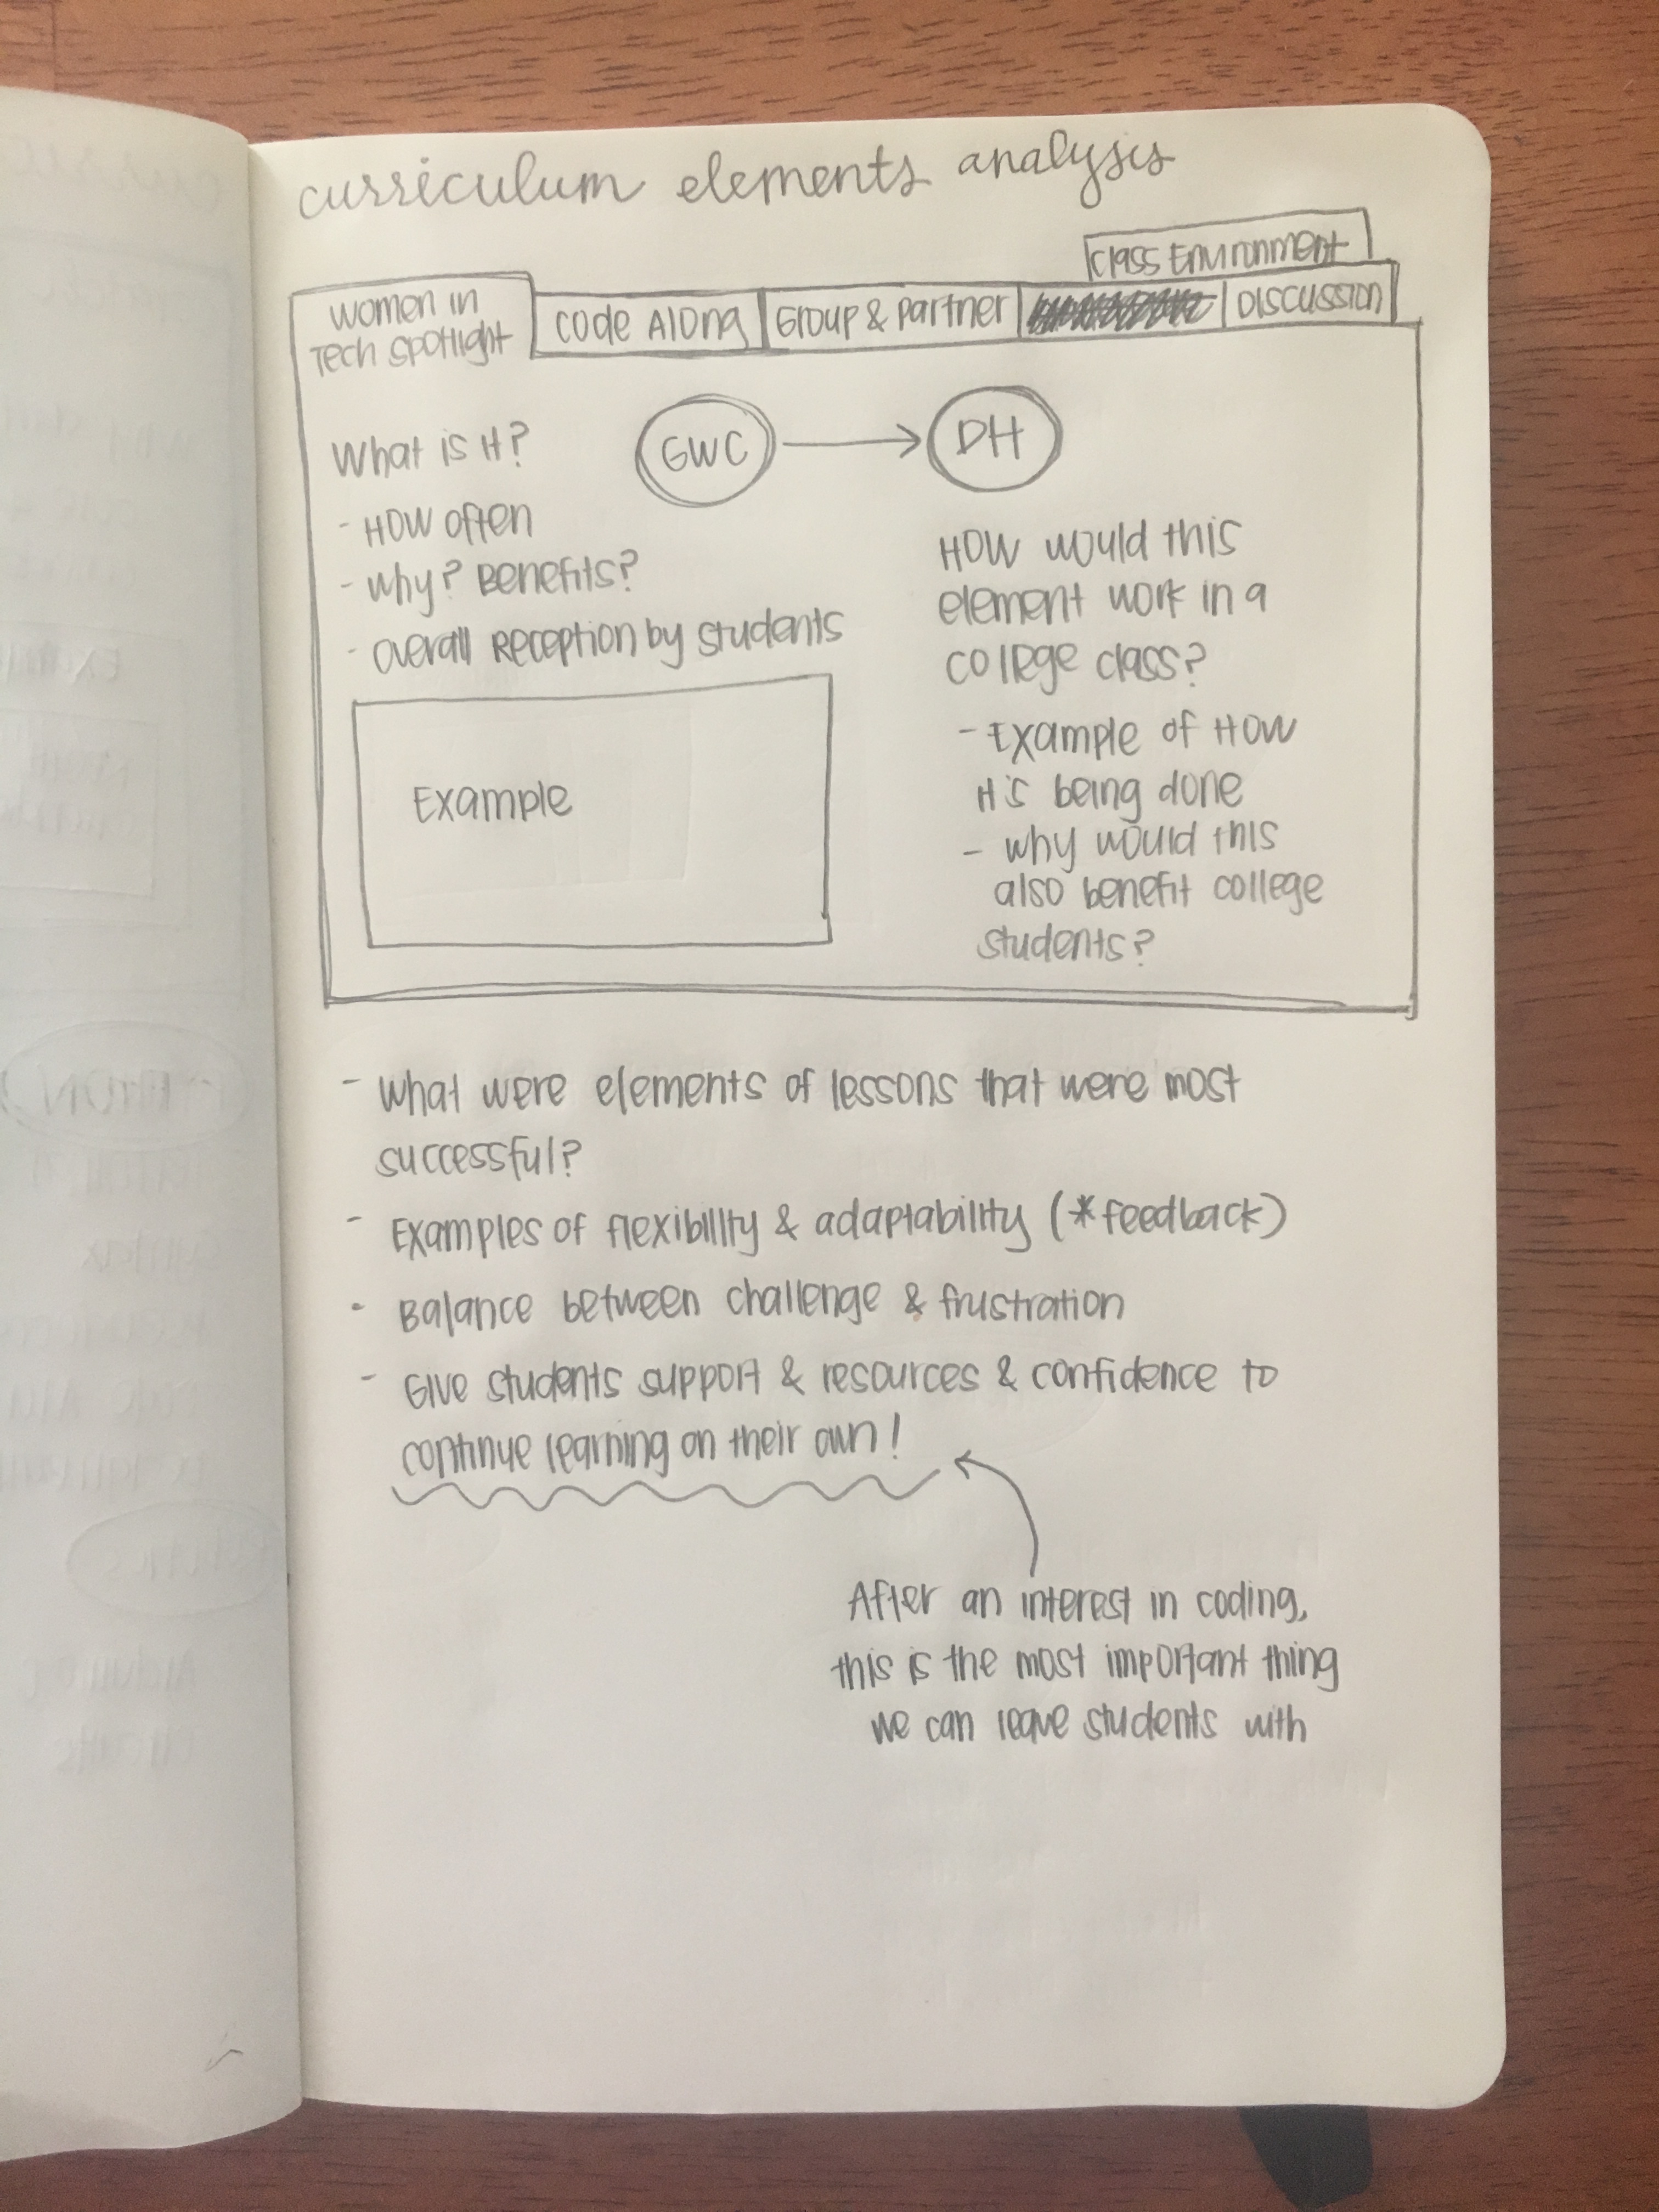 curriculum elements analysis
Class Environment
Women in
Tech Spotlight
Code Along
Group & Partner
Discussion
What is it?
- How often
- Why? Benefits?
- Overall Reception by students
Example
GWC
DH
How would this
element work in a
college class?
- Example of how
it's being done
- why would this
also benefit college
students?
- What were elements of lessons that were most
successful?
- Examples of flexibility & adaptability (*feedback)
- Balance between challenge & frustration
- Give students support & resources & confidence to
continue learning on their own!
After an interest in coding,
this is the most important thing
we can leave students with